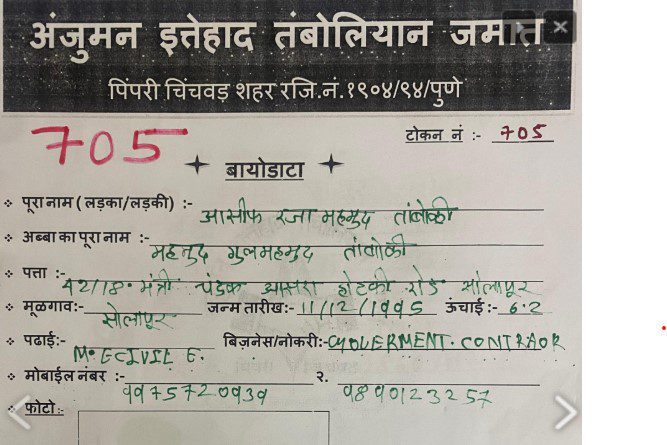 अंजुमन इत्तेहाद तंबोलियान जमात
पिंपरी चिंचवड़ शहर रजि.नं.१९०४/९४/पुणे
705
टोकन नं :- 705
बायोडाटा
पूरा नाम ( लड़का/लड़की) :- आसीफ रजा महमुद तांबोळी
अब्बा का पूरा नाम :- महमुद गुलमहमुद तांबोळी
पत्ता :- 42/18. मंत्री चंडक आसरा होटकी रोड सोलापूर
मूळगाव:- सोलापूर जन्म तारीख:- 11/12/1995 ऊंचाई:- 6.2
पढाई:- M.E CIVIL E. बिज़नेस/नोकरी:- GOVERMENT. CONTRAOR
मोबाईल नंबर :- 9975720939 २. 9890123257
फोटो:-